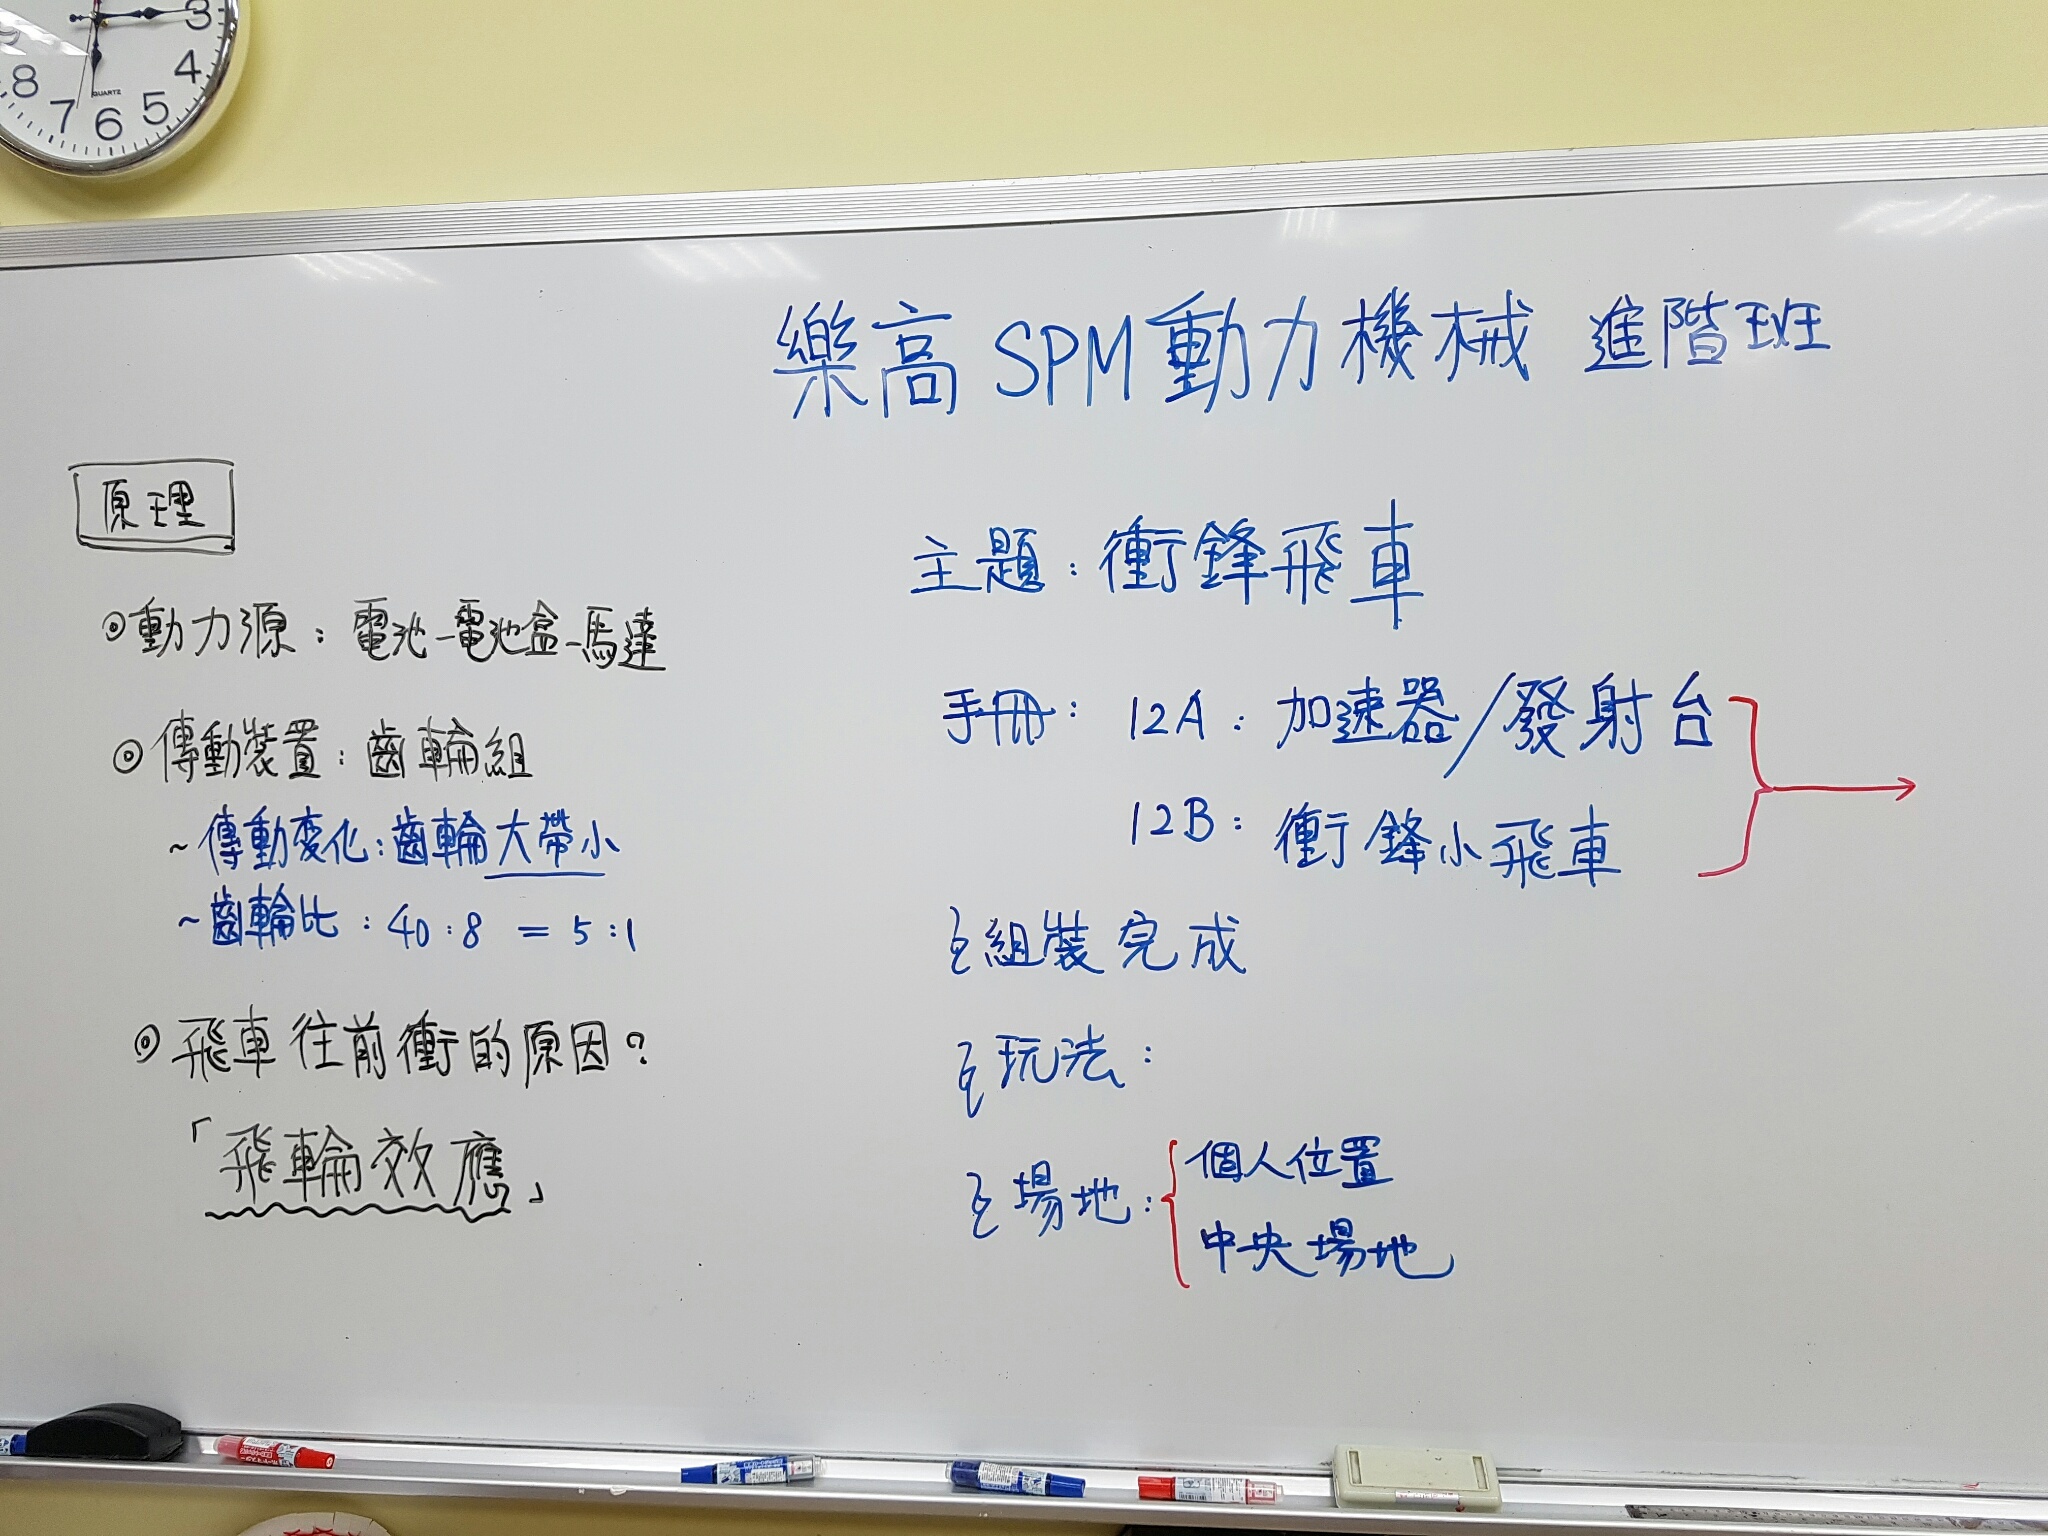 3
4
5
6
7
8
QUARTZ
樂高 SPM 動力機械 進階班
原理
◎動力源：電池-電池盒-馬達
◎傳動裝置：齒輪組
~傳動變化：齒輪大帶小
~齒輪比：40:8 = 5:1
◎飛車往前衝的原因?
「飛輪效應」
主題：衝鋒飛車
手冊：12A：加速器/發射台
12B：衝鋒小飛車
組裝完成
玩法：
場地：
個人位置
中央場地